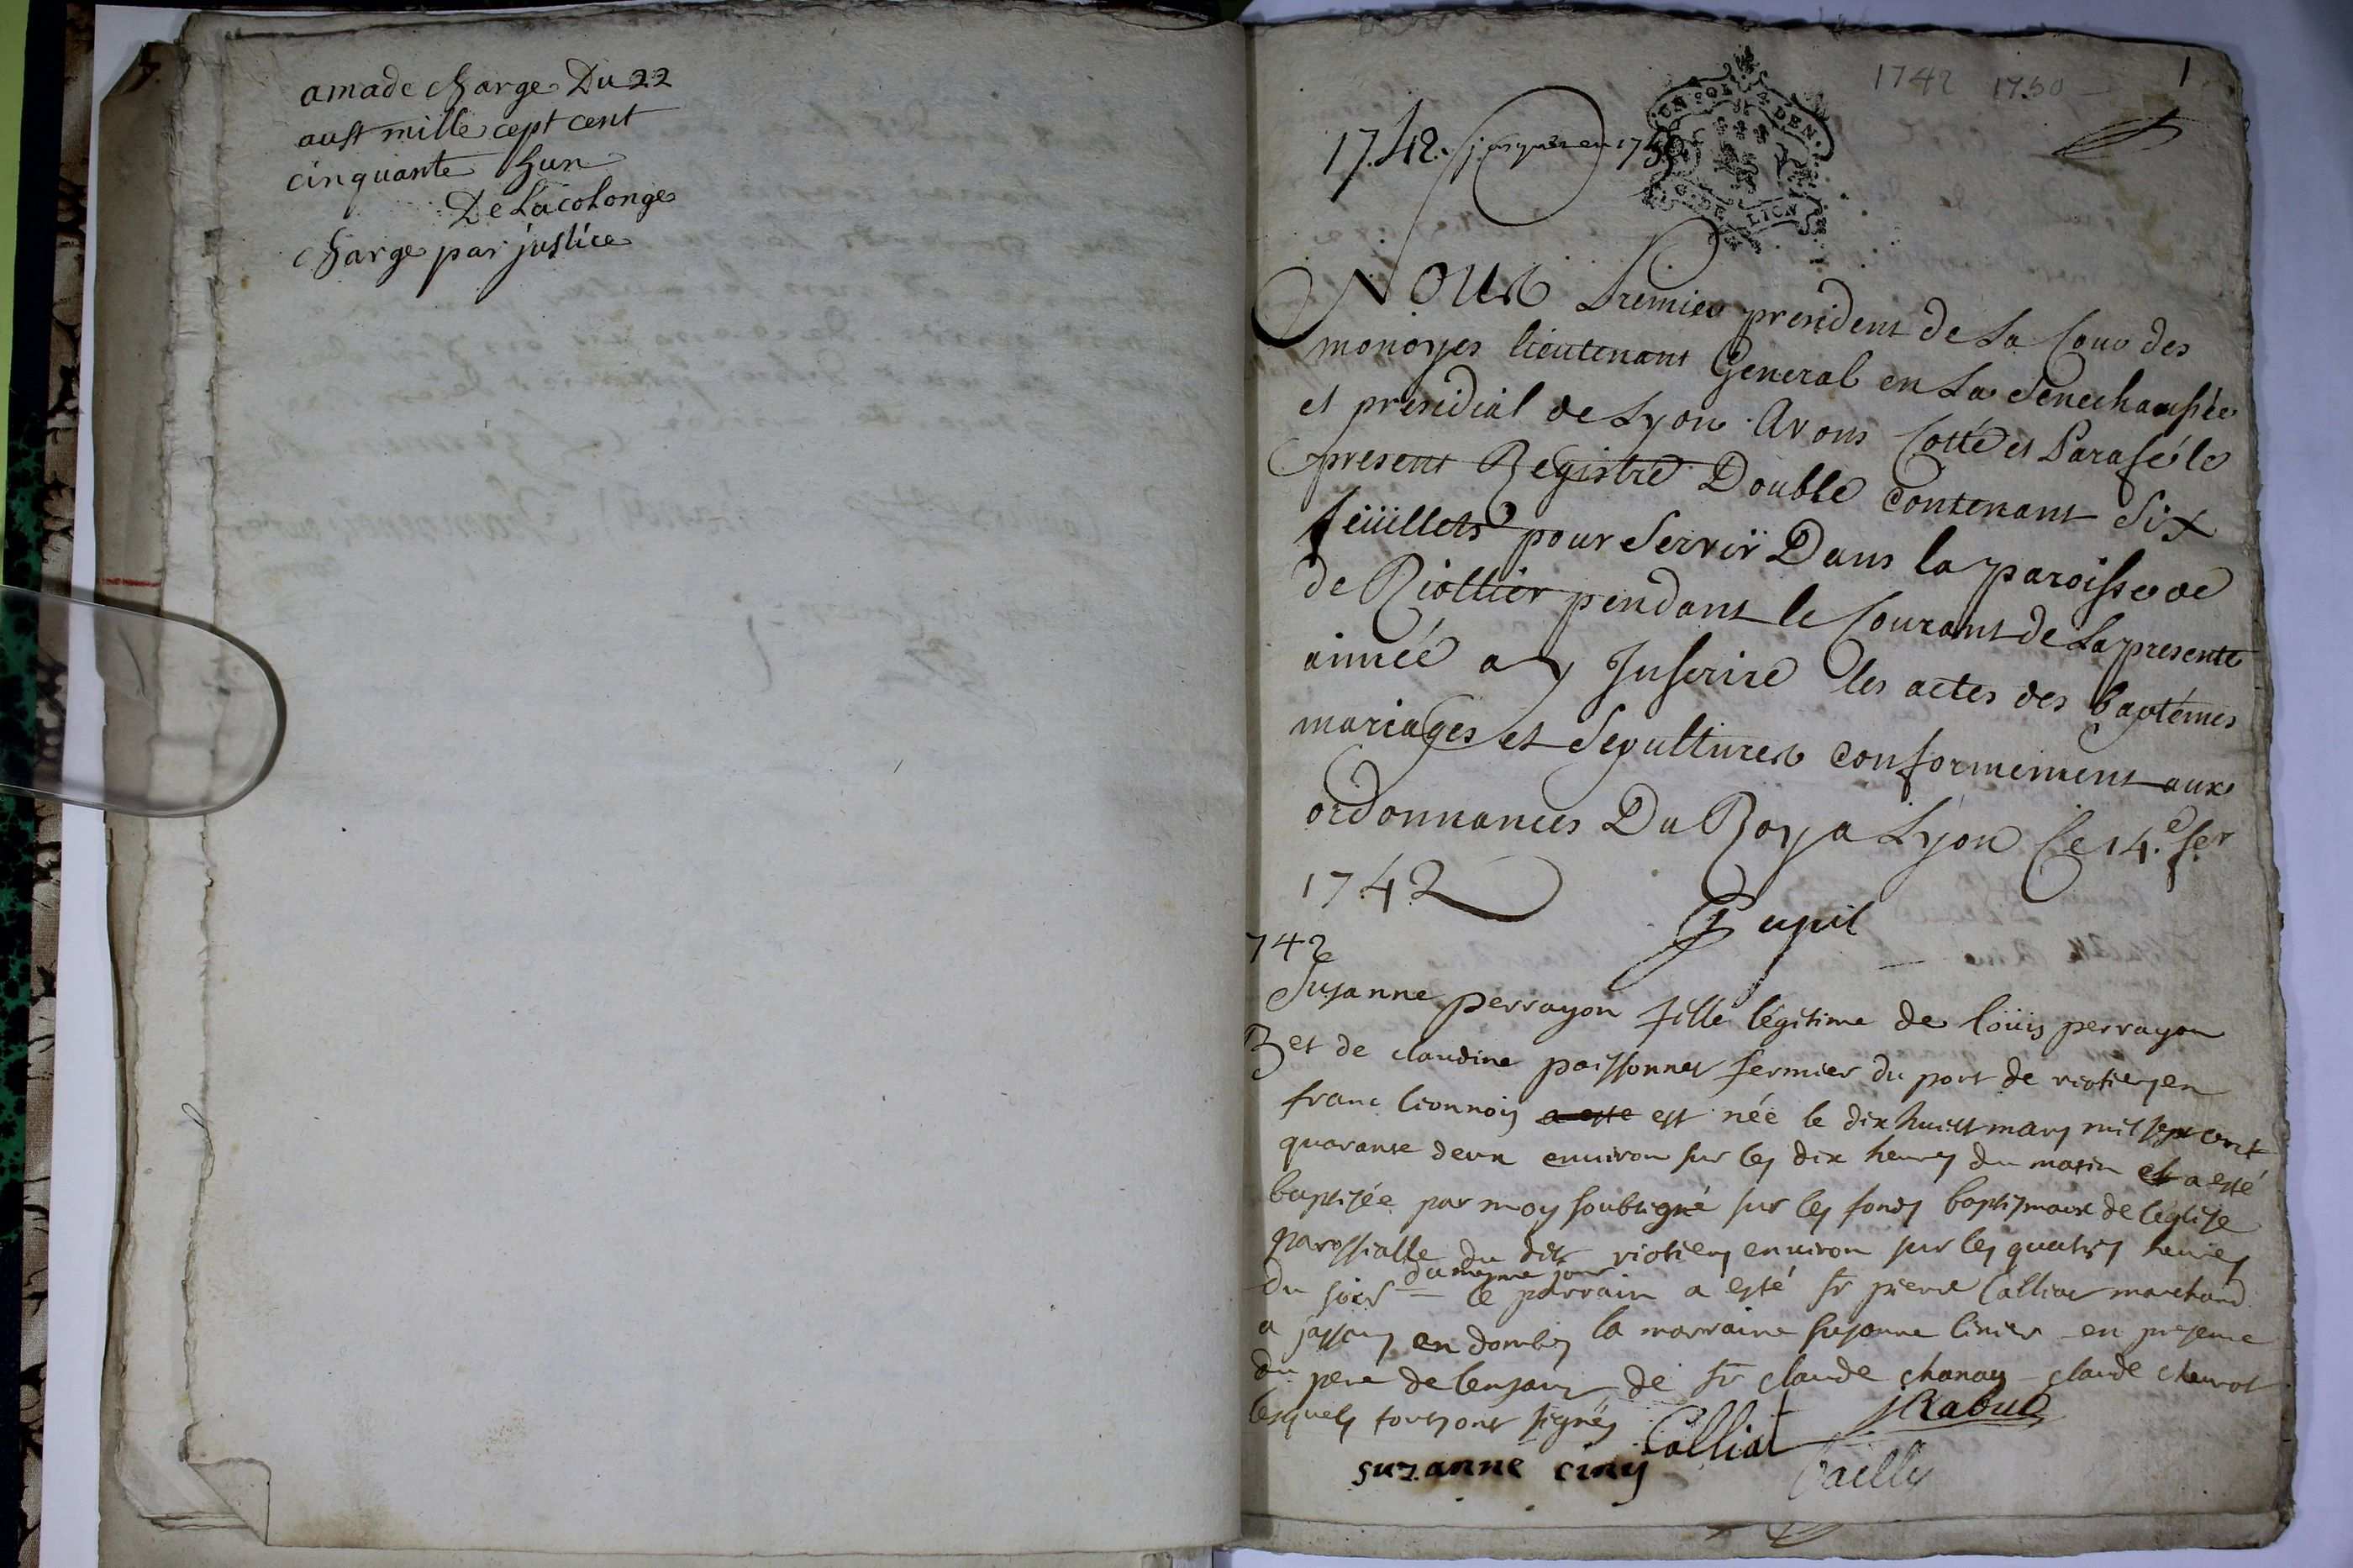 amade charge Du 22
aust mille cept cent
cinquante hun
De Lacolonge
charge par justice
1742 1750
1
1742. jusques en 1750
DEN.
DE LION
Nous Premier president de La Cour des
monoyes lieutenant General en La Senechaussée
et presidial de Lyon Avons Cotté et Parafé le
present Registre Double contenant Six
feüillets pour Servir Dans la paroisse de
de Riottier pendant le Courant de La presente
année a y Inscrire les actes des baptémes
mariages et Sepultures conformement aux
ordonnances Du Roy a Lyon Ce 14.e fer
1742
Pupil
742
Susanne perrayon fille légitime de loüis perrayon
B et de claudine poissonnet fermier du port de riotiers en
franc lionnois a este est née le dix huict mars mil sept cent
quarante deux environ sur les dix heures du matin et a esté
baptisée par moy soubsigné sur les fonds baptismaux de leglise
parossialle du dit riotiers environ sur les quatres heures
du soir du mesme jour le parrain a esté sr pierre Calliat marchand
a jassans en dombes la marraine susanne en presence
du pere de lenfant de sr claude chanay claude
lesquels touts ont signés
Calliat
JRabut
suzanne ciny
Bailly